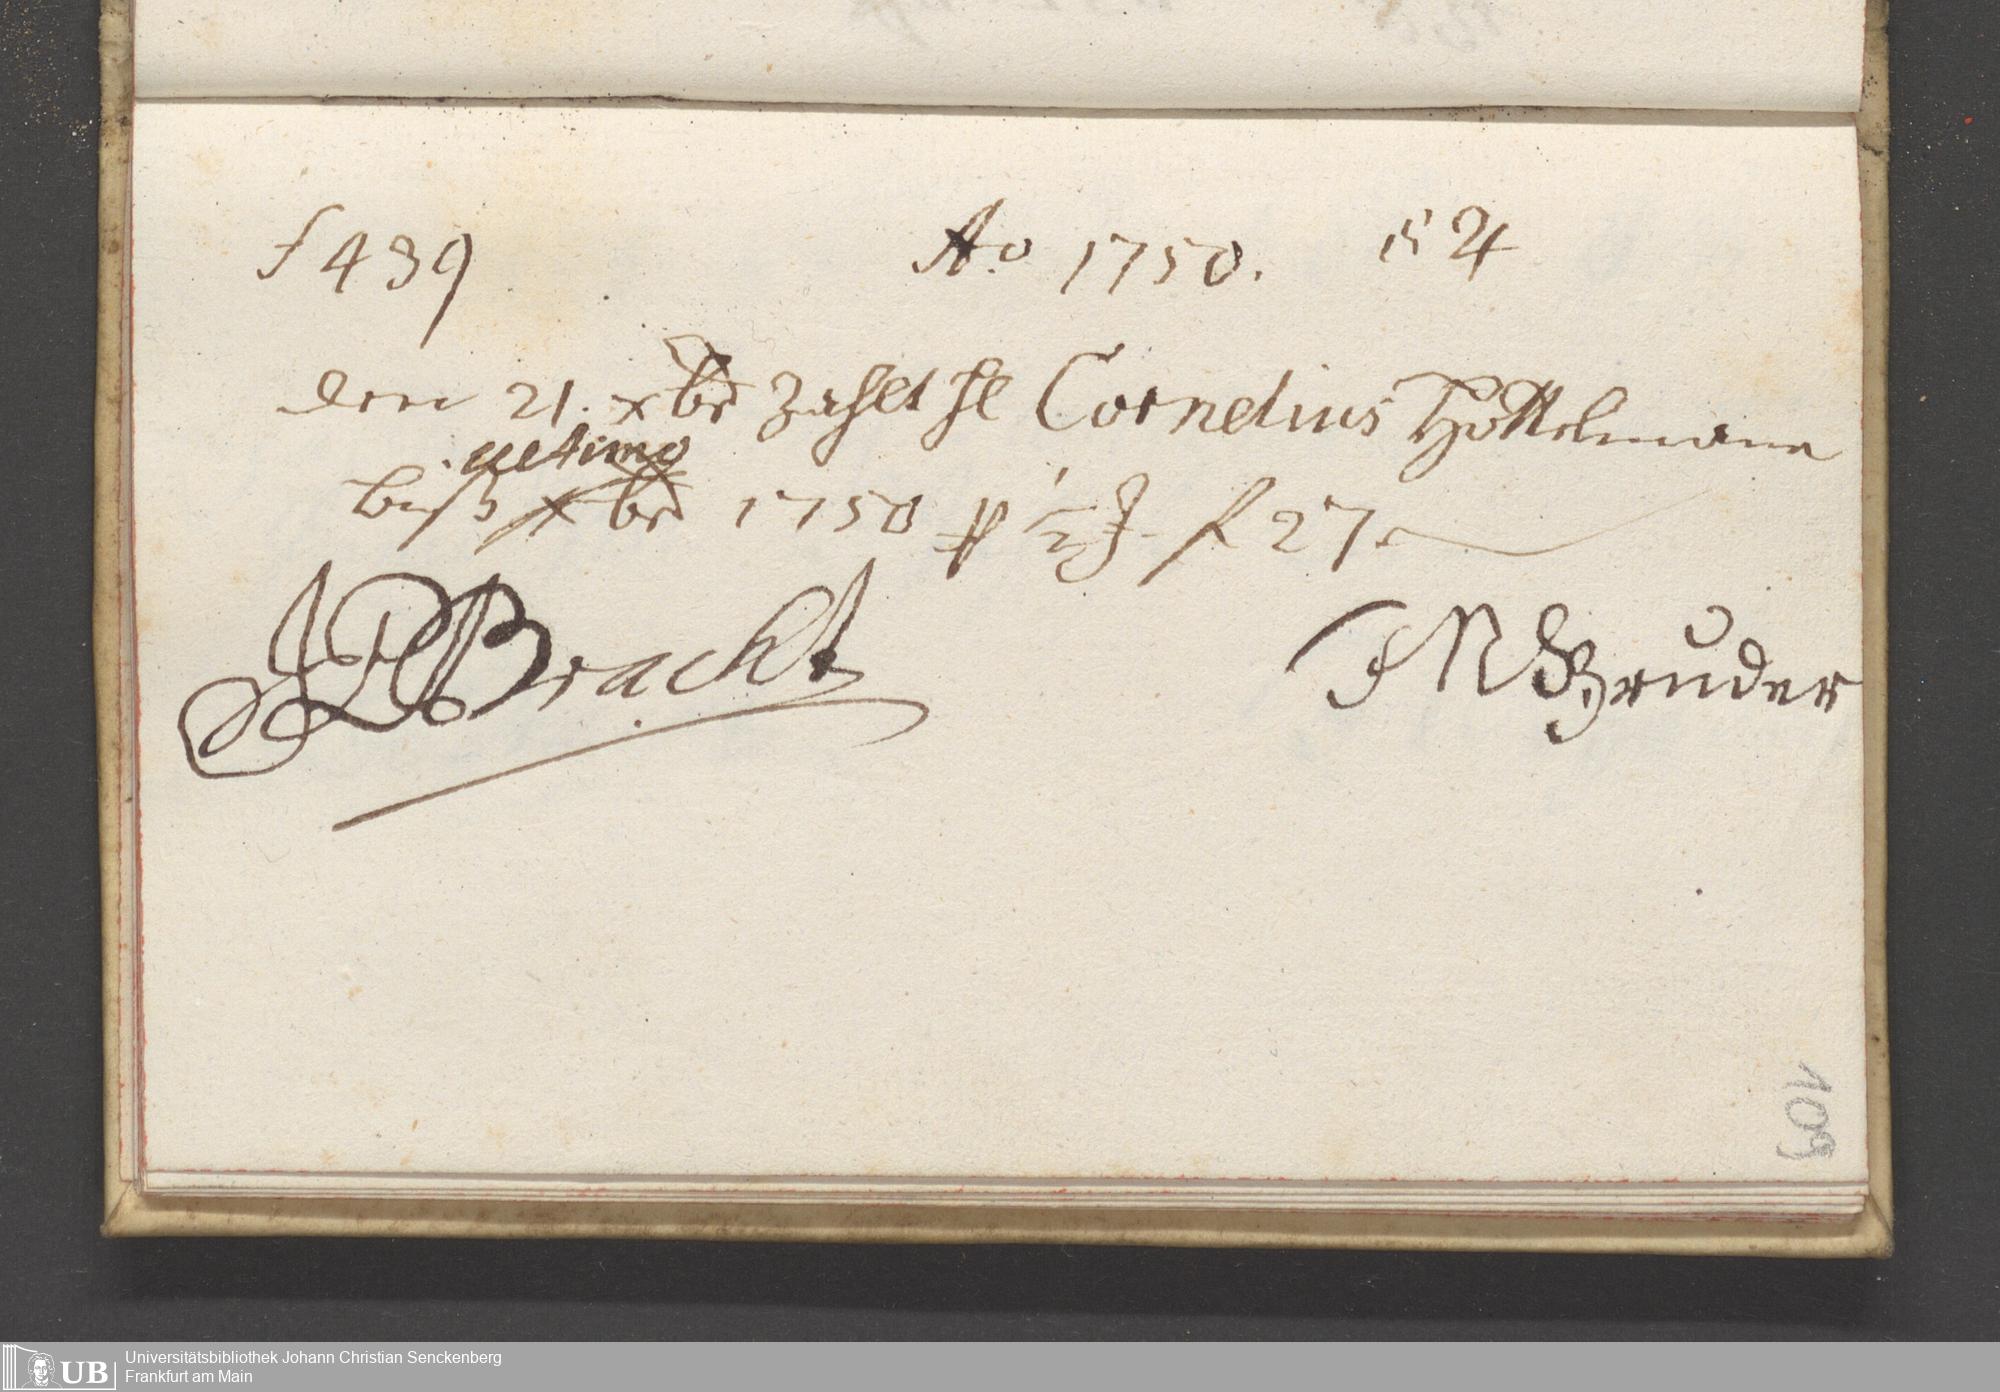 f 439 Ao 1750.
den 21. xbr zahlt hl Cornelius Hottelmann
ultimo
biß xbr 1750 pp ½ J. f 27.
JP Bracht
JM Bruder
109
UB Universitätsbibliothek Johann Christian Senckenberg
Frankfurt am Main